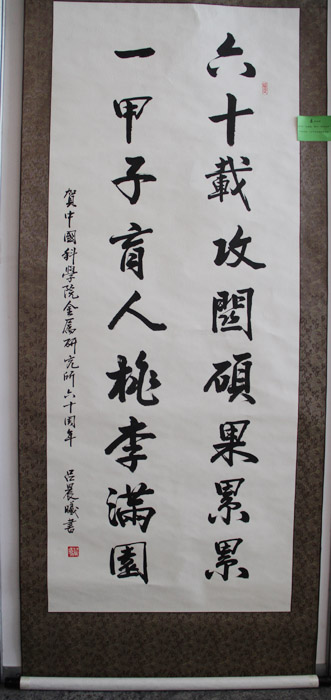 六十載攻関碩果累累
一甲子育人桃李滿園
賀中國科學院金属研究所六十周年 吕晨曦書